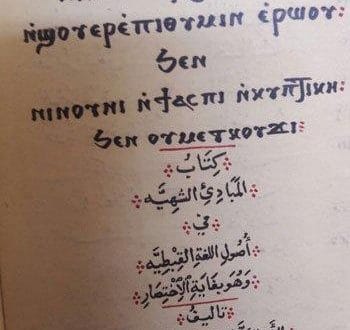 ⲛ̀ϣⲟⲩⲉⲣⲉ̀ⲡⲓⲑⲩⲙⲓⲛ ⲉ̀ⲣⲱⲟⲩ:
ϧⲉⲛ
ⲛⲓⲛⲟⲩⲛⲓ ⲛ̀ϯⲁⲥⲡⲓ ⲛ̀ⲕⲩⲡⲧⲓⲕⲏ:
ϧⲉⲛ ⲟⲩⲙⲉⲧⲕⲟⲩϫⲓ:
كِتَابُ
المَبَادِئ الشَهِيَّه
في
أُصُولِ اللغَةِ القِبطِيَّه
وَهُوَ بِغَايَةِ الاِخْتِصَارِ
تَالِيفُ